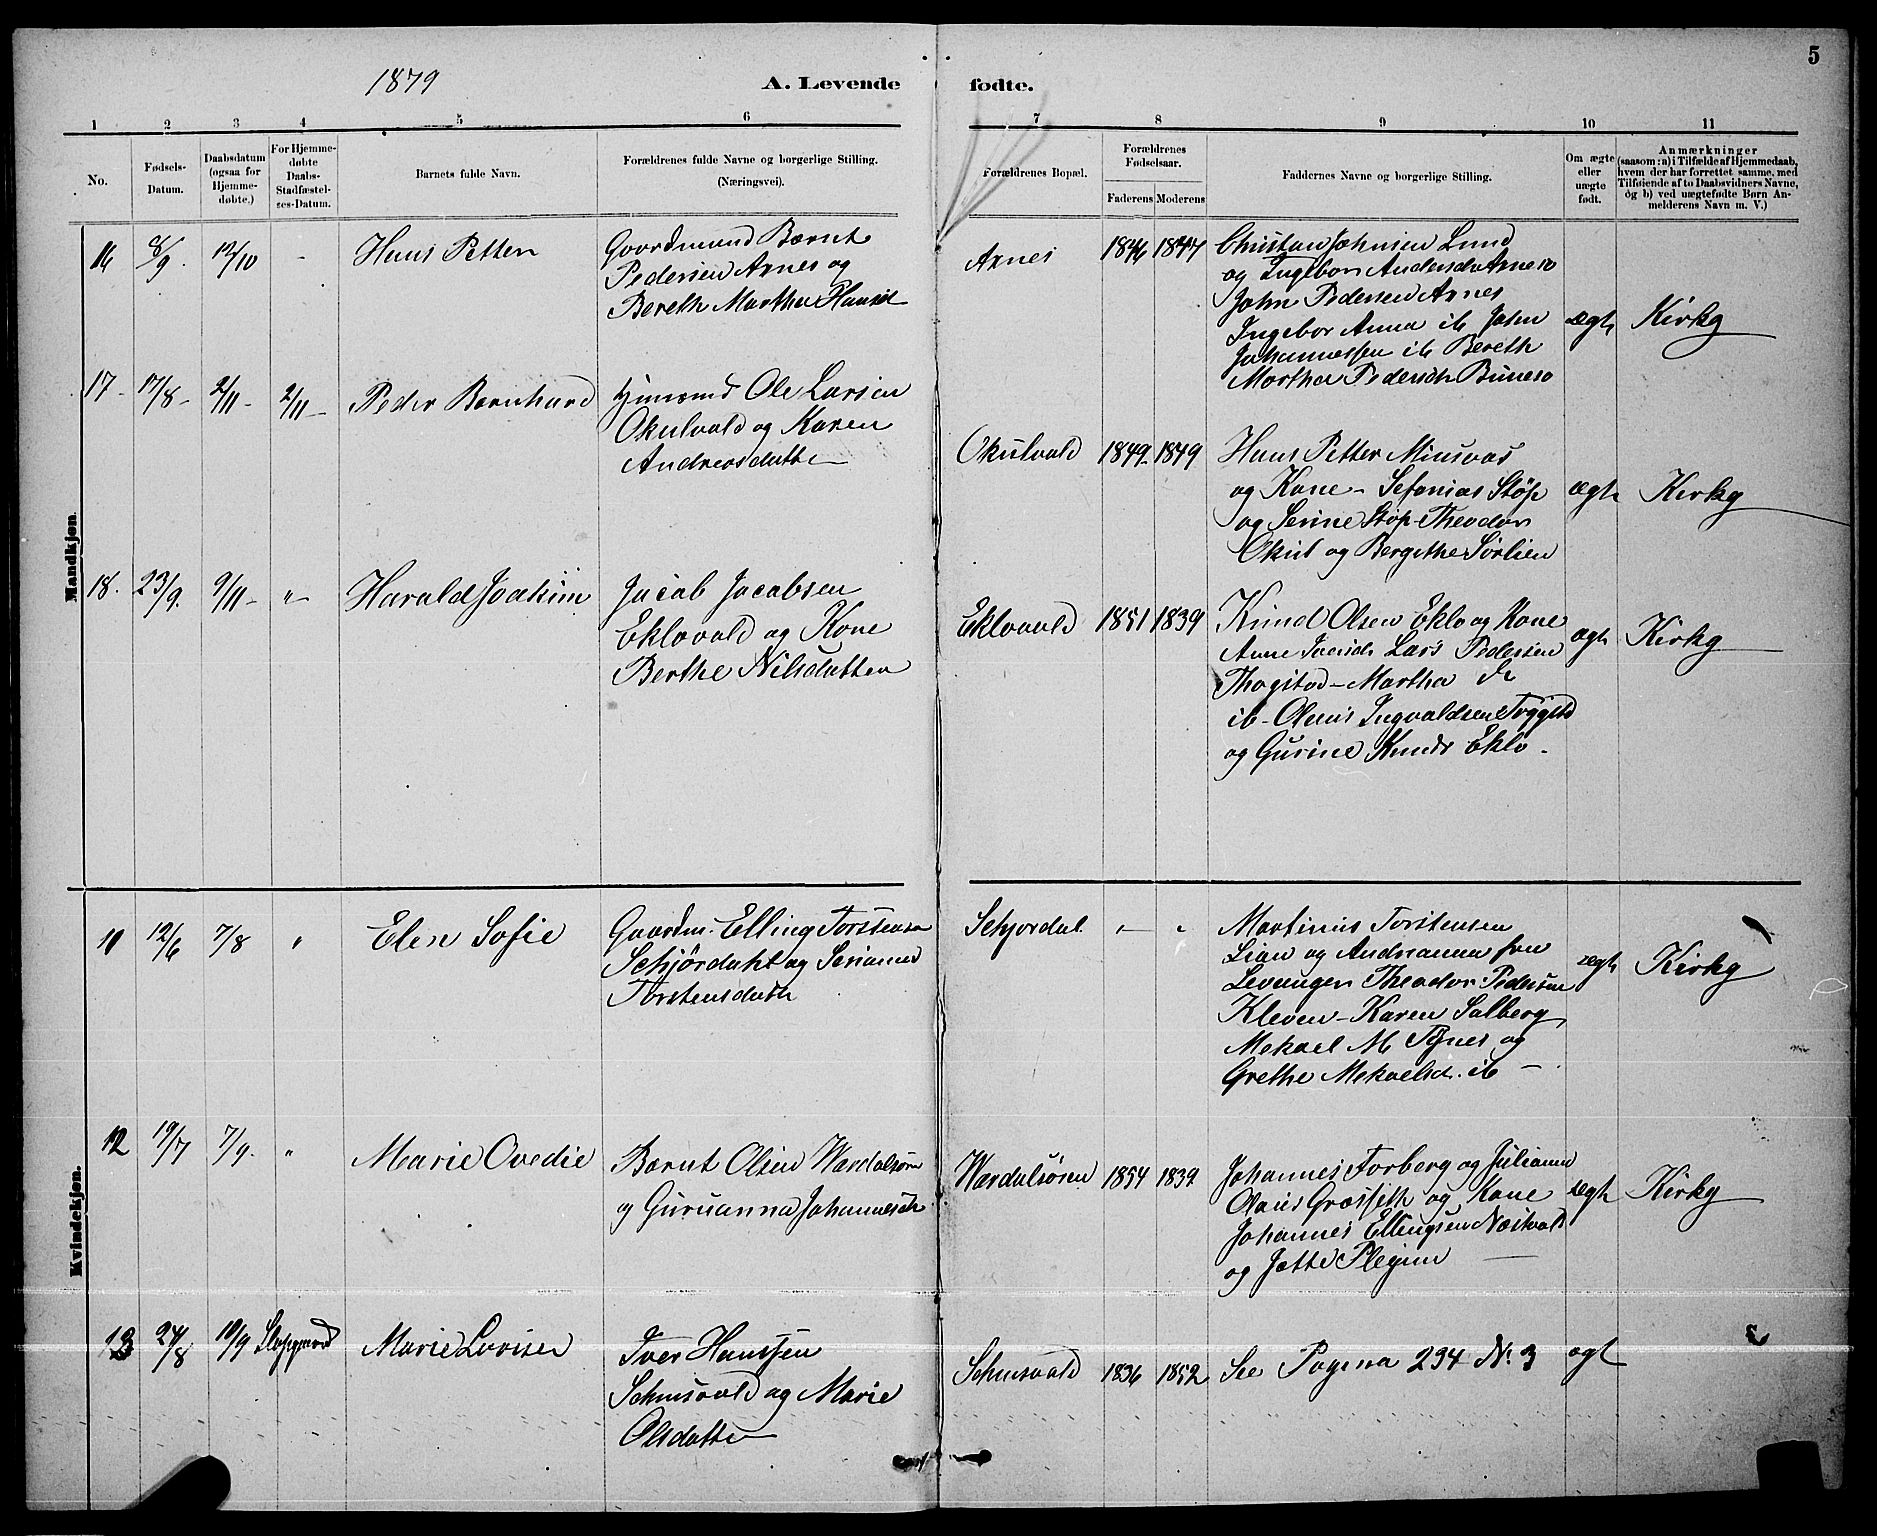 5
1879 A. Levende fødte.
1 2 3 4 5 6 7 8 9 10 11
No.
Fødsels-
Datum.
Daabsdatum
(ogsaa for
Hjemme-
døbte.)
For Hjemme-
døbte
Daabs-
Stadfæstel-
ses-Datum.
Barnets fulde Navn.
Forældrenes fulde Navne og borgerlige Stilling.
(Næringsvei).
Forældrenes Bopæl.
Forældrenes
Fødselsaar.
Faderens Moderens
Faddernes Navne og borgerlige Stilling.
Om ægte
eller
uægte
født.
Anmærkninger
(saasom: a) i Tilfælde af Hjemmedaab,
hvem der har forrettet samme, med
Tilføiende af to Daabsvidners Navne,
og b) ved uægtefødte Børn An-
melderens Navn m. V.)
Mandkjøn.
16 8/9. 12/10 - Hans Petter
Gaardmand Bernt
Pedersen Arnes og
Bereth Martha Hansd
Arnes 1846 1847
Christan Johnsen Lund
og Ingebor Andersd Arnes
John Pedersen Arnes
Ingebor Anna ib John
Johannessen ib Bereth
Martha Pedersdt
ægt Kirkg
17- 17/8- 2/11- 2/11- Peder Bernhard
Ole Larsen
Okulvald og Karen
Andreasdatte
Okulvald 1849- 1849
Hans Petter Minsvas
og Kone - Sefanias Støp
og Serine Støp - Theodor
Okul og Bergithe Sørlien
ægt Kirkg
18. 23/9. 9/11- "- Harald Joakim
Jacob Jacobsen
Eklovald og Kone
Berthe Nilsdatter
Eklovald 1851 1839
Knud Olsen Eklo og Kone
Anne Lars Pedersen
- Martha
ib - Olaus Ingvaldsen
og Gurine Knuds Eklo -
ægt Kirkg
Kvindekjøn.
11 12/6 7/8 " Elen Sofie
Gaardm. Elling Torstensen
Schjørdahl og Serianna
Torstensdatt
Schjørdal - "
Martinus Torstensen
Lian og Andrianna fra
Levanger Theodor Pedersen
Kleven - Karen Salberg
Mekael M. Tynes og
Grethe Mekaelsd. ib -
ægt Kirkg
12 19/7 7/9. " Marie Ovedie
Bernt Olsen Værdalsøren
og Guruanna Johannesdt
Værdalsøren 1854 1839
Johannes Forberg og Julianna
Olaus Græsseth og Kone
Johannes Ellingsen Næstvold
og Jette
ægt Kirkg
13 24/8 10/9 Marie Lovise
Iver Hanssen
Schnsvald og Marie
Olsdatte
Schnsvald 1836 1852 See Pagina 234 N. 3 ægt